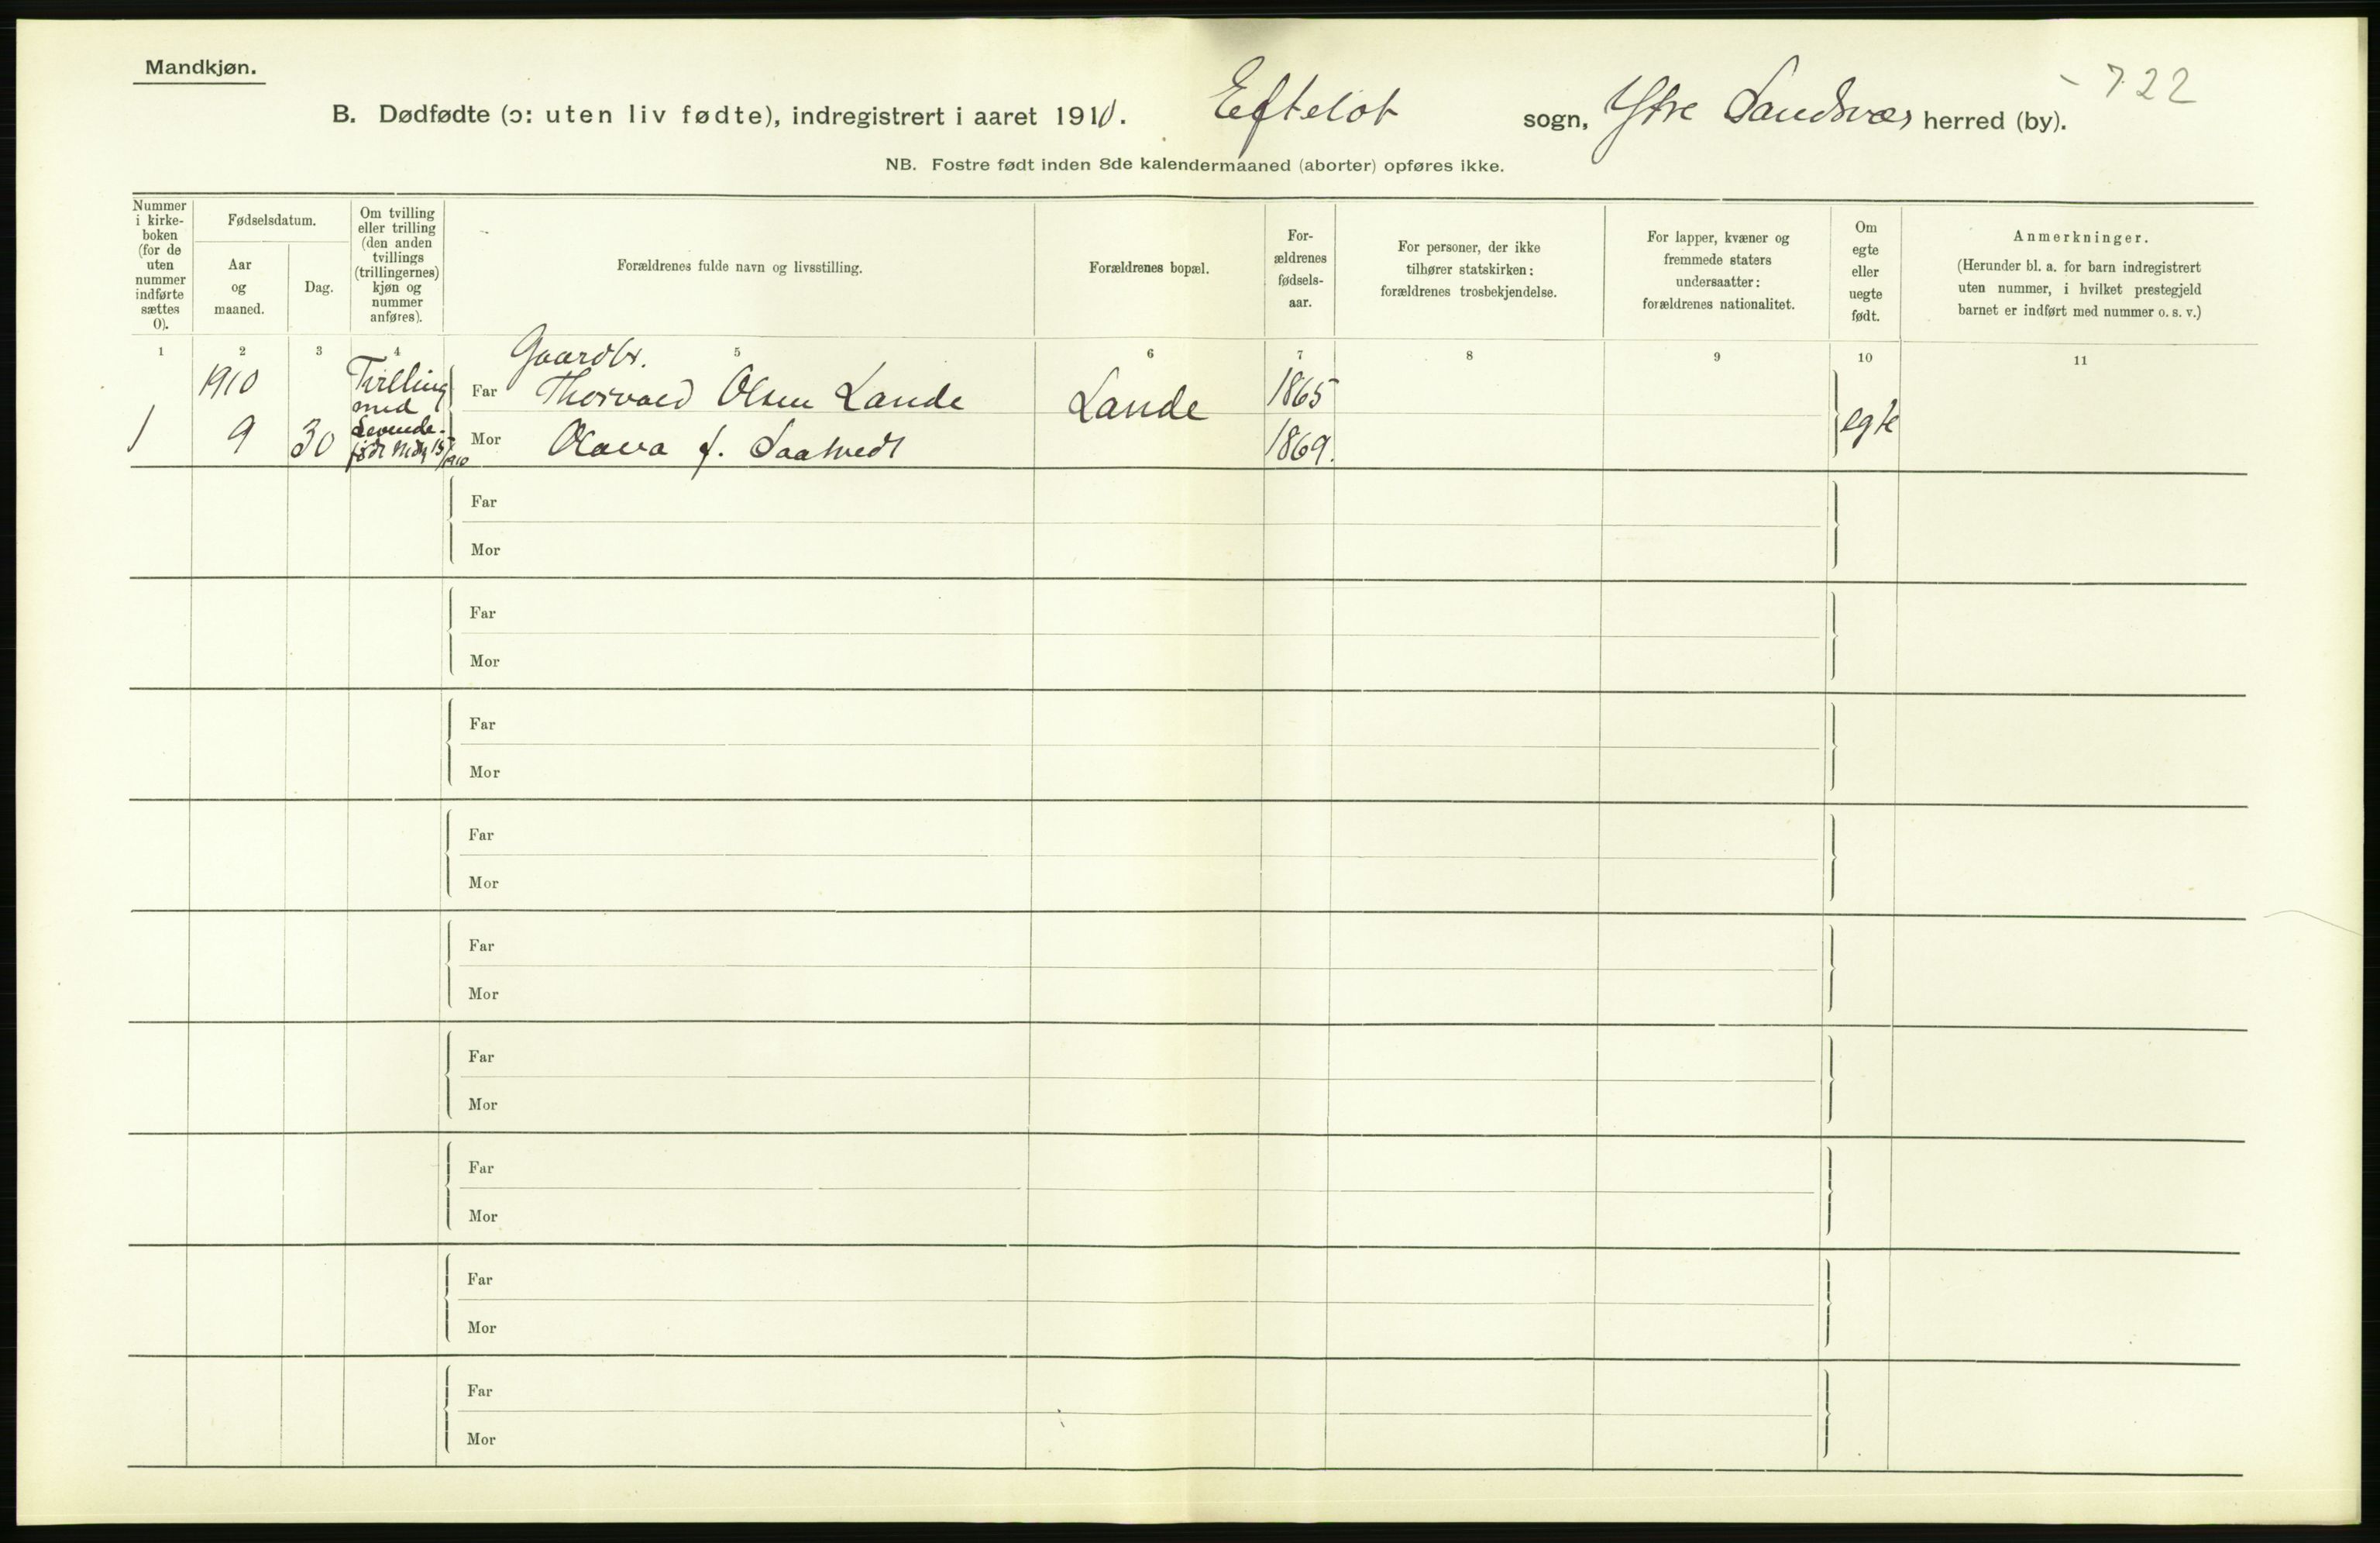 Mandkjøn.
- 722
B. Dødfødte (ɔ: uten liv fødte), indregistrert i aaret 1910. Eftelöt sogn, Ytre Sandsvær herred (by).
NB. Fostre født inden 8de kalendermaaned (aborter) opføres ikke.
Nummer
i kirke-
boken
(for de
uten
nummer
indførte
sættes
0).
Fødselsdatum.
Aar
og
maaned.
Dag.
Om tvilling
eller trilling
(den anden
tvillings
(trillingernes)
kjøn og
nummer
anføres).
Forældrenes fulde navn og livsstilling.
Forældrenes bopæl.
For-
ældrenes
fødsels-
aar.
For personer, der ikke
tilhører statskirken:
forældrenes trosbekjendelse.
For lapper, kvæner og
fremmede staters
undersaatter:
forældrenes nationalitet.
Om
egte
eller
uegte
født.
Anmerkninger.
(Herunder bl. a. for barn indregistrert
uten nummer, i hvilket prestegjeld
barnet er indført med nummer o. s. v.)
1 2 3 4 5 6 7 8 9 10 11
1
1910
9
30
Tvilling
med
Levende-
födt 15/1910
Gaardbr.
Far Thorvald Olsen Lande
Mor Olava f. Saatvedt
Lande
1865
1869.
egte
Far
Mor
Far
Mor
Far
Mor
Far
Mor
Far
Mor
Far
Mor
Far
Mor
Far
Mor
Far
Mor